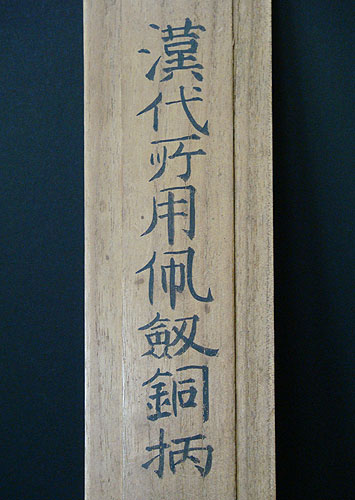 漢代所用佩劔銅柄